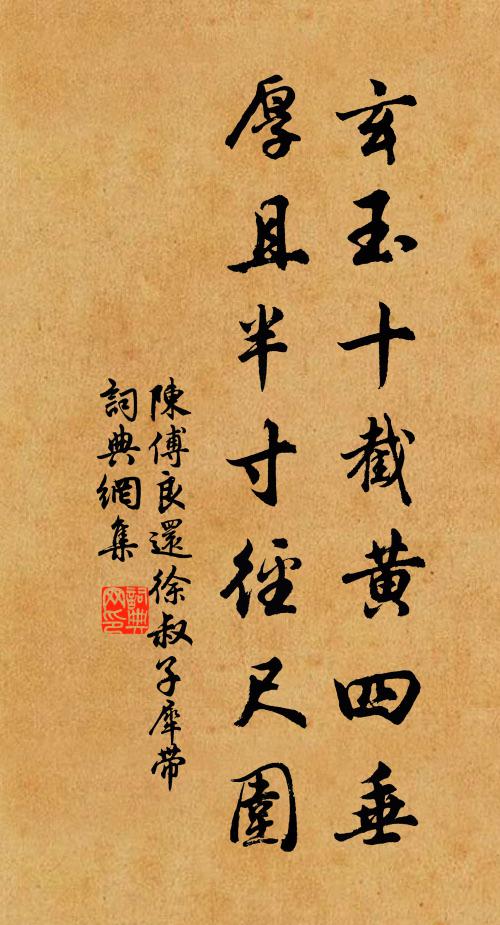 玄玉十截黃四垂
厚且半寸徑尺圍
陳傅良還徐叔子犀帶
詞典網集
詞典
网印